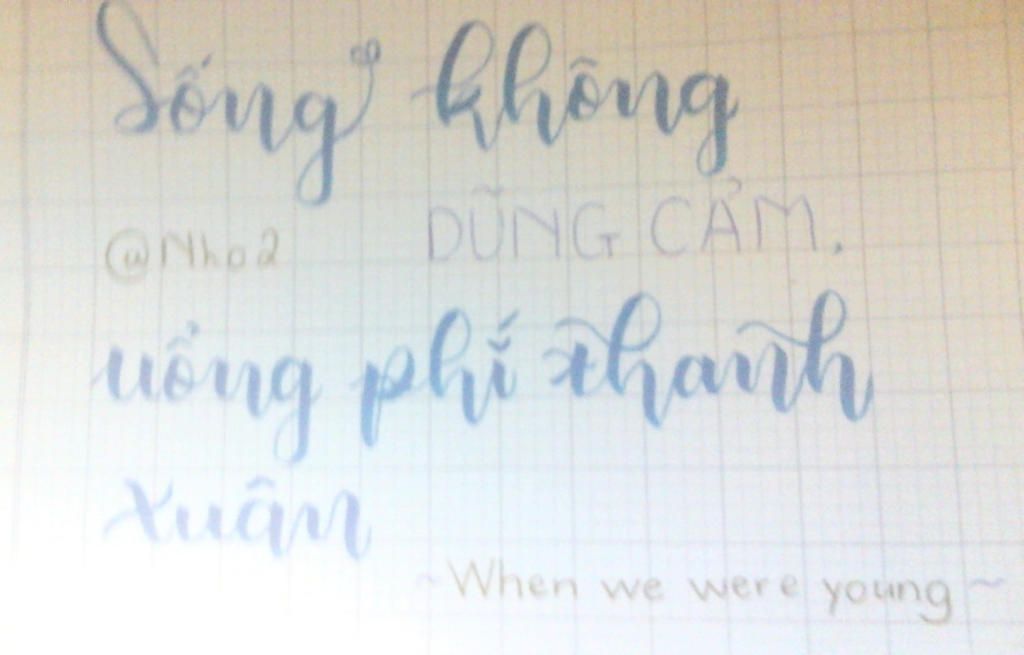 Sống không
DŨNG CẢM.
@Nho2
uổng phí thanh
xuân
~When we were young~